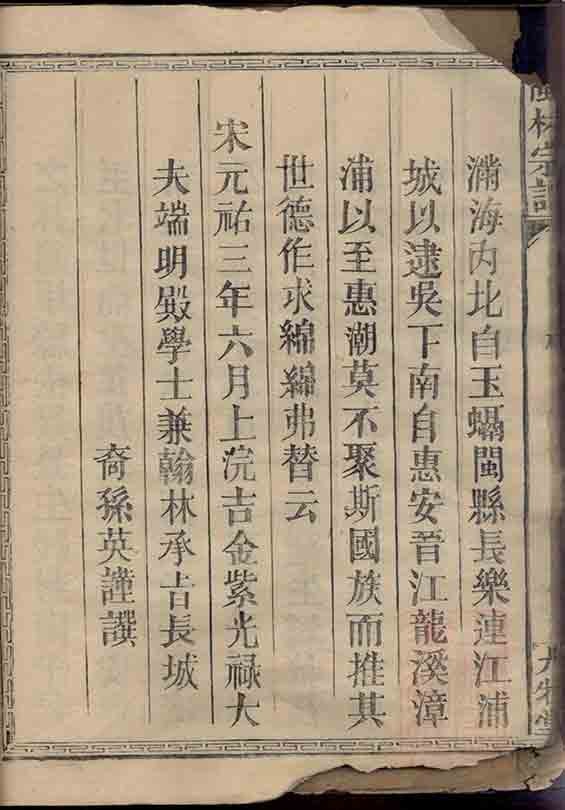 林宗譜
滿海內北自玉蠕閩縣長樂連江浦
城以逮吳下南自惠安晉江龍溪漳
浦以至惠潮莫不聚斯國族而推其
世德作求綿綿弗替云
宋元祐三年六月上浣吉金紫光祿大
夫端明殿學士兼翰林承旨長城
裔孫英謹譔